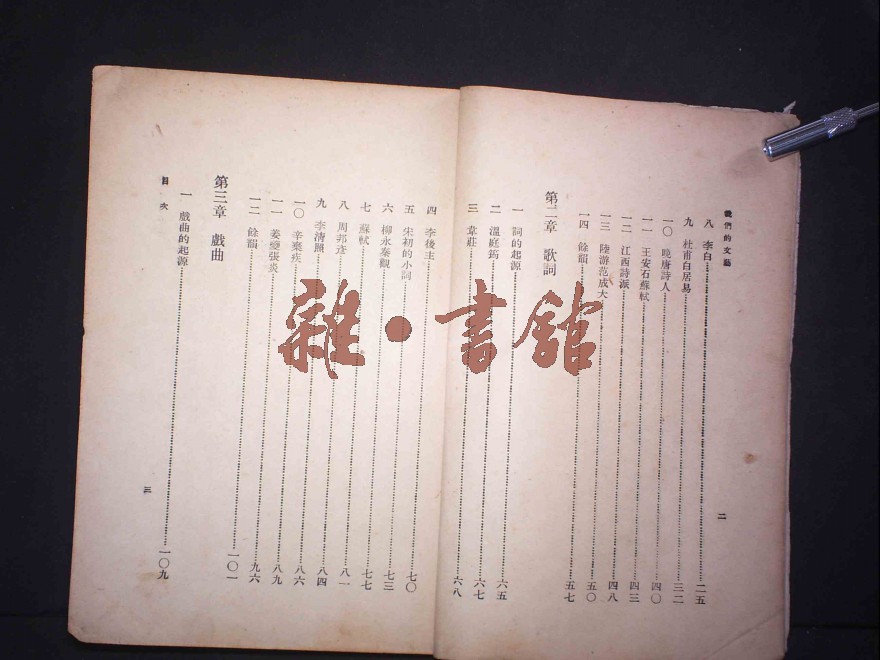 我們的文藝
八 李白……二五
九 杜甫白居易……三二
一〇 晚唐詩人……四〇
一一 王安石蘇軾……四三
一二 江西詩派……四八
一三 陸游范成大……五〇
一四 餘韻……五七
第二章 歌詞
一 詞的起源……六五
二 溫庭筠……六七
三 韋莊……六八
二
四 李後主……七〇
五 宋初的小詞……七三
六 柳永秦觀……七七
七 蘇軾……八一
八 周邦彥……八四
九 李清照……八六
一〇 辛棄疾……八九
一一 姜夔張炎……九六
一二 餘韻……一〇一
第三章 戲曲
一 戲曲的起源……一〇九
目次
三
雜·書館